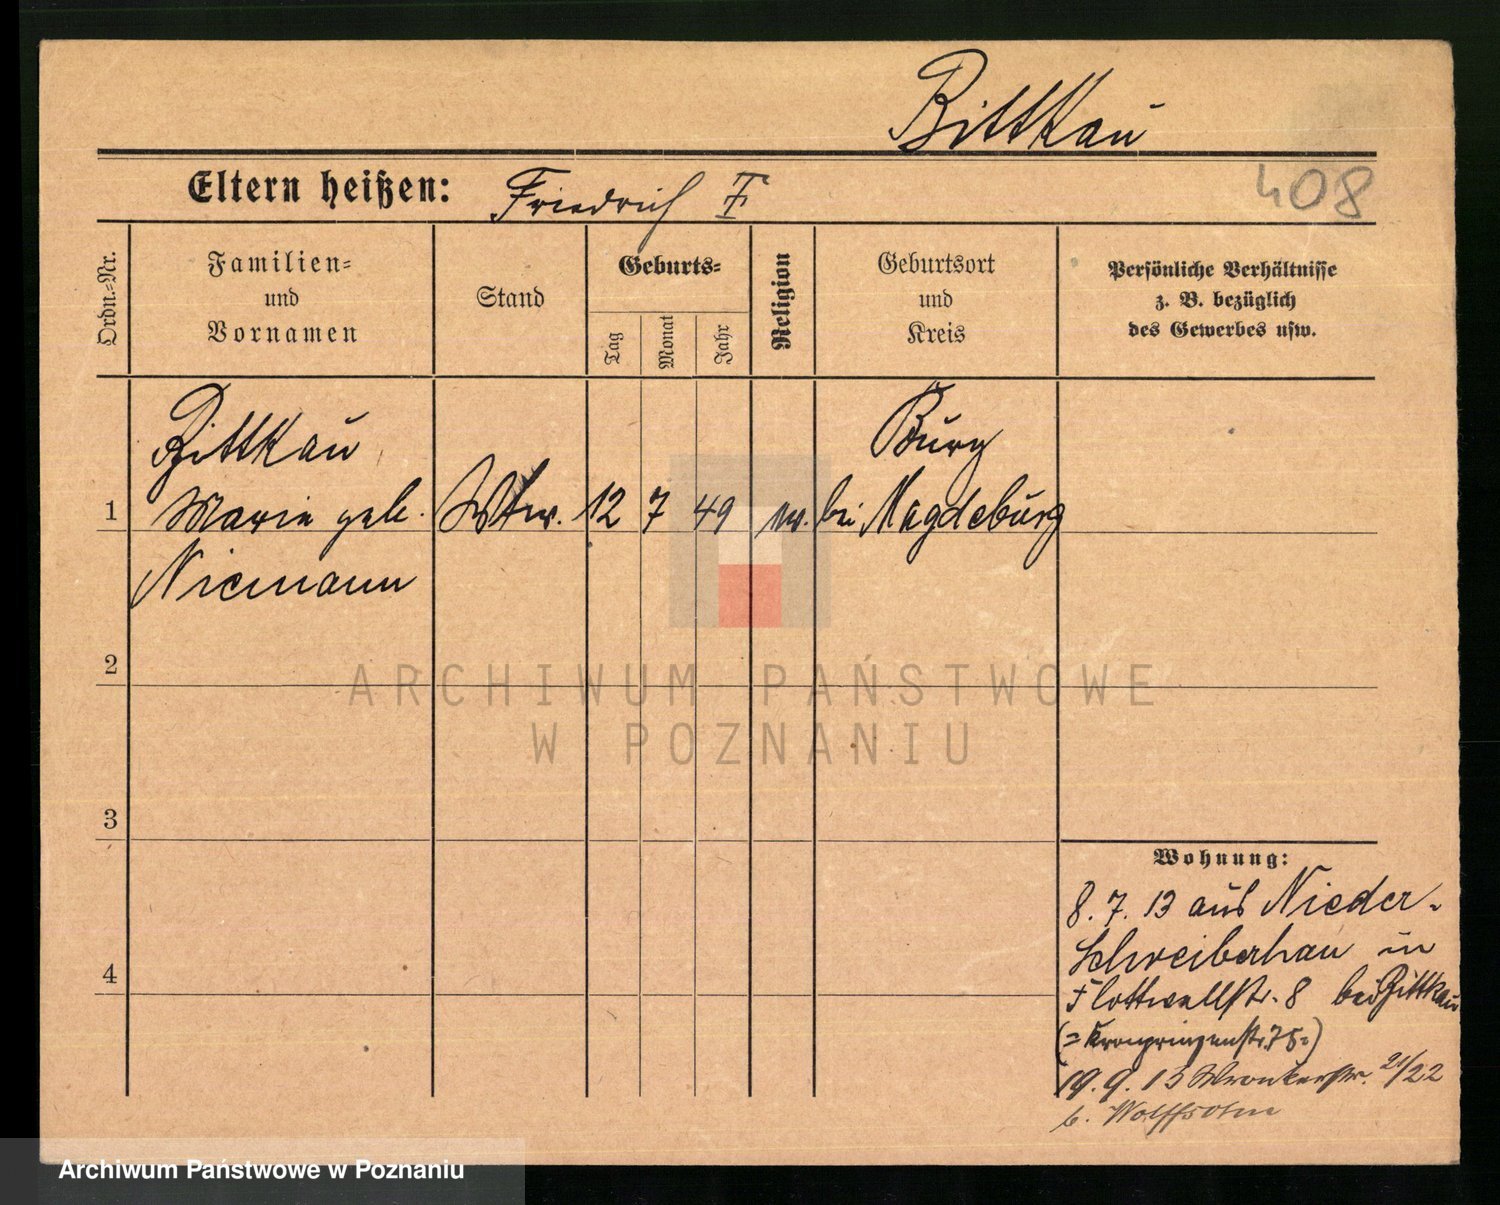 Bittkau
408
Eltern heißen: Friedrich F
Ordn.-Nr.
Familien- und Vornamen
Stand
Geburts-
Tag
Monat
Jahr
Religion
Geburtsort und Kreis
Persönliche Verhältnisse z. B. bezüglich des Gewerbes usw.
Bittkau
Burg
1 Marie geb. Wtw. 12 7 49 bei Magdeburg
Niemann
2
ARCHIWUM PAŃSTWOWE
W POZNANIU
3
Wohnung:
8. 7. 13 aus Nieder-
Schreiberhau in
4
Flottwellstr. 8 bei Bittkau
(= Kronprinzenstr. 75.)
19. 9. 13 Wronkerstr. 21/22
b. Wolffsohn
Archiwum Państwowe w Poznaniu